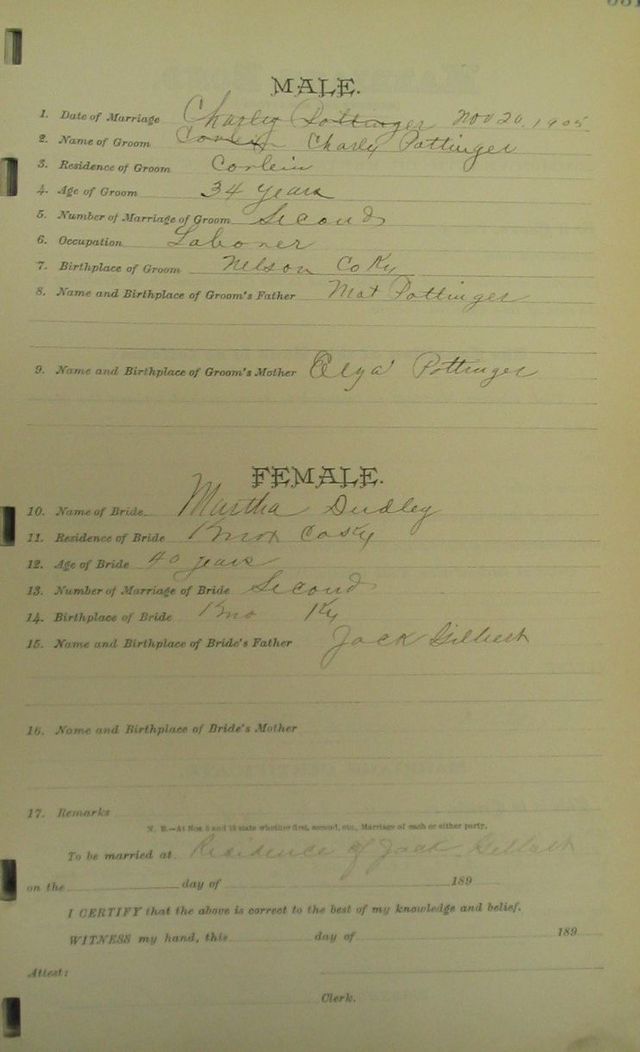 MALE.
1. Date of Marriage Charley Pottinger Nov 20, 1905
2. Name of Groom Corbin Charly Pottinger
3. Residence of Groom Corbin
4. Age of Groom 34 years
5. Number of Marriage of Groom Second
6. Occupation Laborer
7. Birthplace of Groom Nelson Co Ky
8. Name and Birthplace of Groom's Father Mat Pottinger
9. Name and Birthplace of Groom's Mother Pottinger
FEMALE.
10. Name of Bride Martha Dudley
11. Residence of Bride Knox Co Ky
12. Age of Bride 40 years
13. Number of Marriage of Bride Second
14. Birthplace of Bride Kno Ky
15. Name and Birthplace of Bride's Father Jack Gilbert
16. Name and Birthplace of Bride's Mother
17. Remarks
N. B.—At Nos 5 and 13 state whether first, second, etc., Marriage of each or either party.
To be married at Residence of Jack Gilbert
on the day of 189
I CERTIFY that the above is correct to the best of my knowledge and belief.
WITNESS my hand, this day of 189
Attest:
Clerk.